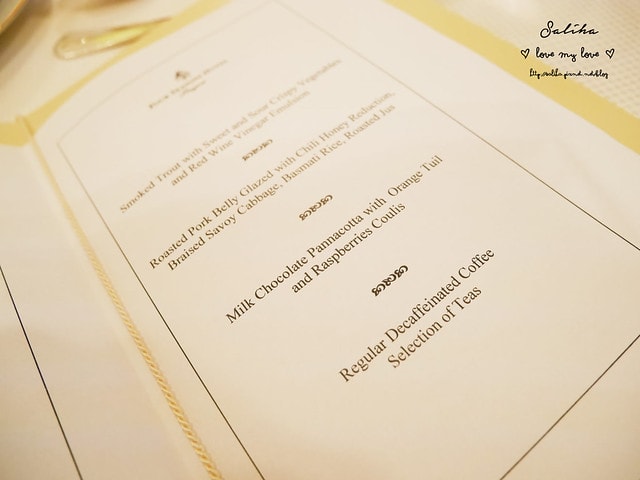 Saliha
♡ love my love ♡
Smoked Trout with Sweet and Sour Crispy Vegetables
and Red Wine Vinegar Emulsion
Roasted Pork Belly Glazed with Chili Honey Reduction,
Braised Savoy Cabbage, Basmati Rice, Roasted Jus
Milk Chocolate Pannacotta with Orange Tuil
and Raspberries Coulis
Regular Decaffeinated Coffee
Selection of Teas